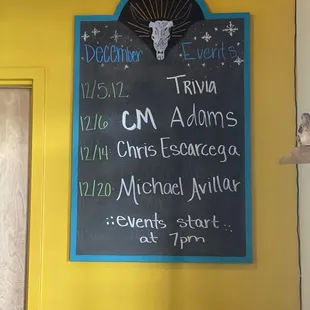 December Events
12/5.12. Trivia
12/6 CM Adams
12/14: Chris Escarcega
12/20: Michael Avillar
::events start::
at 7pm